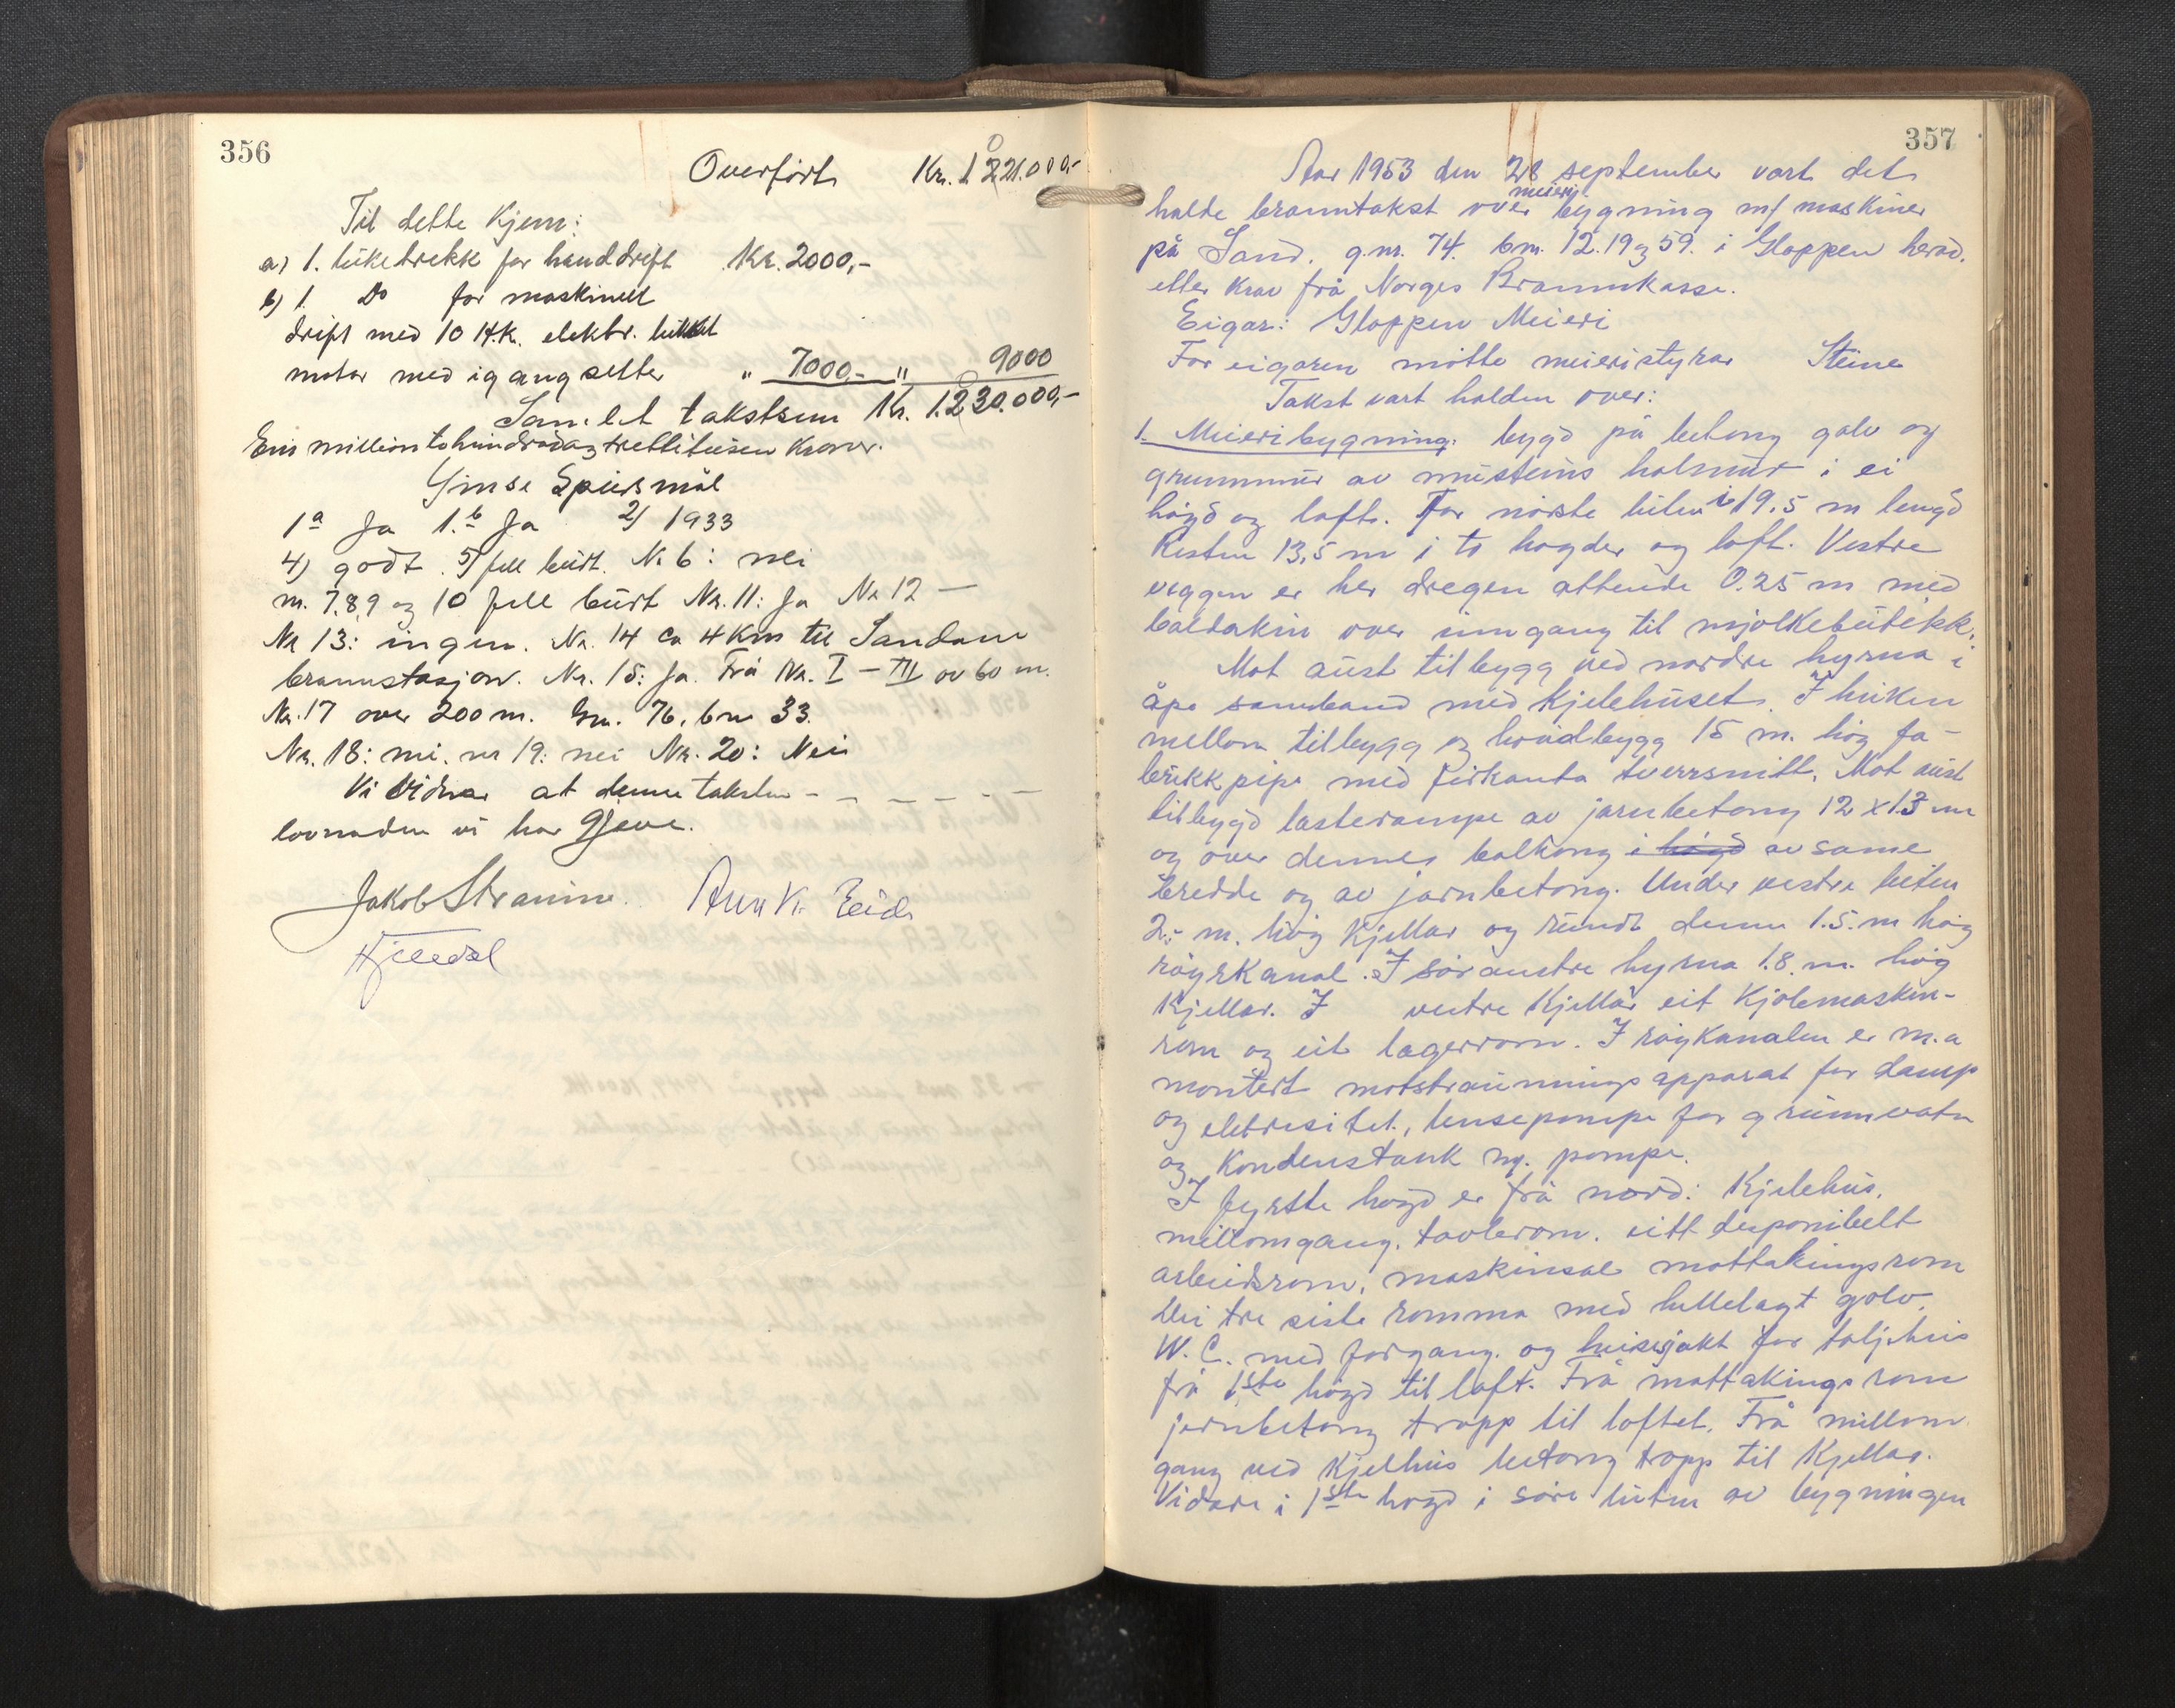 356
Overført Kr. 1.221.000,-
Til dette kjem:
a) 1. lüketrekk for handdrift Kr. 2000,-
b) 1. Do for maskinell
drift med 10 H.K. elektr. lukket
motor med igangsetter " 7000,- " 9000
Samlet takstsum Kr. 1.230.000,-
Ein million tohundradogtrettitusen kroner.
Ymse Spursmål
1a Ja 1.b Ja 2) 1933
4) godt. 5) fell burt. Nr 6: nei
nr. 7.8.9 og 10 fell burt Nr. 11: Ja Nr 12 —
Nr 13: ingen. Nr. 14 ca 4 km til Sandane
brannstasjon. Nr. 15: Ja. Frå Nr. I – III ov 60 m.
Nr. 17 over 200 m. Gnr. 76, bnr 33.
Nr. 18: nei. nr 19: nei Nr. 20: Nei
Vi vidnar at denne taksten - - - - - - -
lovnaden vi har gjeve.
Jakob Straume. Eide
357
Aar 1953 den 28 september vart det
halde branntakst over meieri bygning m/ maskiner
på Sand. g.nr. 74. bnr. 12.19 og 59. i Gloppen herad.
etter krav frå Norges Brannkasse.
Eigar: Gloppen Meieri
For eigaren møtte meieristyrar Steine
Takst vart halden over:
1. Meieribygning. bygd på betong golv og
grunnmur av mursteins holmur i ei
høgd og loft. For nørste luten i 19.5 m lengd
Resten 13,5 m i to høgder og loft. Vestre
veggen er her dregen attende 0.25 m med
baldakin over inngang til mjølkebutikk.
Mot aust tilbygg ved nordre hyrna i
åpe samband med kjelehuset. I kriken
mellom tilbygg og hovudbygg 15 m. høg fa-
brikkpipe med firkanta tverrsnitt. Mot aust
tilbygd lasterampe av jarnbetong 12 x 1.3 m
og over dennes balkong i høgd av same
bredde og av jarnbetong. Under vestre luten
2.- m. høg kjellar og rundt denne 1.5. m høg
røyrkanal. I søraustre hyrna 1.8. m. høg
kjellar. I vestre kjellar eit kjølemaskin-
rom og eit lagerrom. I røykanalen er m.a
montert motstraumningsapparat for damp
og eletresitet, lensepompe for grunnvatn
og kondenstank m. pompe.
I fyrste høgd er frå nord: Kjelehus,
millomgang, tavlerom. eitt desponibelt
arbeidsrom, maskinsal mottakingsrom
Dei tre siste romma med hellelagt golv.
W.C. med forgang. og heisesjakt for taljeheis
frå 1ste høgd til loft. Frå mottakingsrom
jarnbetong tropp til loftet. Frå millom
gang ved kjelhus betong tropp til kjellar.
Vidare i 1ste høgd i søre luten av bygningen